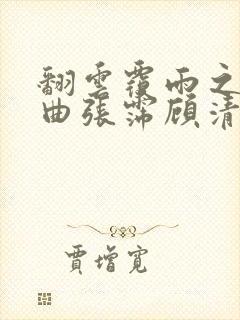 翻雲覆雨之
曲張霈顧清
賈增寬